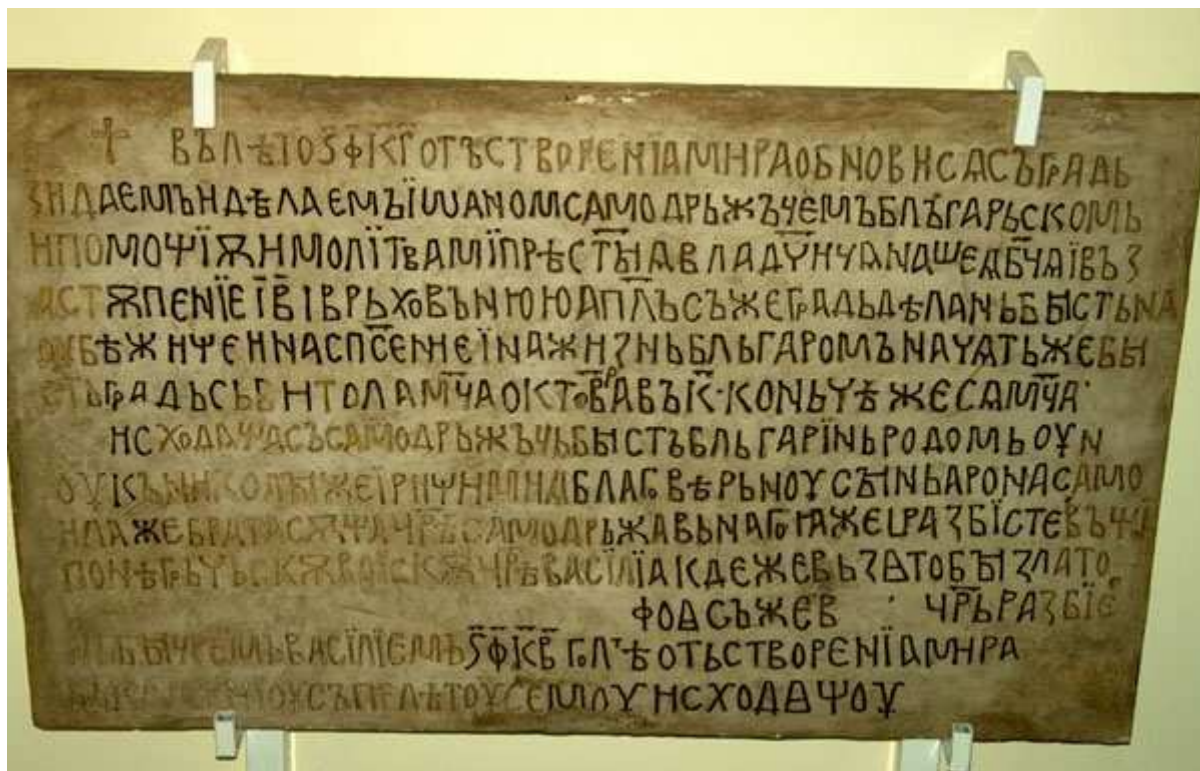 † ВЪЛѢТОЅ҃Ф҃К҃Г҃ОТЪСТВОРЕНІАМИРАОБНОВИСАСЪГРАДЬ
ЗИДАЕМЪИДѢЛАЕМЪЇѠАНОМСАМОДРЬЖЪЧЕМЪБЛЪГАРЬСКОМЬ
ИПОМОЩЇѪИМОЛЇТВАМЇПРѢСТ҃ЫѦВЛАДѴИЧАНАШЕѦБЧ҃АЇВЪЗ
АСТѪПЕНЇЕІ҃В҃ІВРЬХОВЪНЮЮАПЛ҃ЪСЪЖЕГРАДЬДѢЛАНЬББЫСТЬНА
ОУБѢЖИЩЕИНАСПС҃ЕНЕЇНАЖИЗНЬБЛЬГАРОМЪНАЧѦТЬЖЕБЫ
СТЬГРАДЬСЬБИТОЛАМЧ҃АОКТОВРАВЪК҃·КОНЬЧѢЖЕСАМЧ҃А·
ИСХОДѦЩАСЪСАМОДРЬЖЪЧЬБЫСТЪБЛЬГАРЇНЬРОДОМЬОУН
ОУКЪНИКОЛЫЖЕЇРИѰИМИИАБЛАГОВѢРЬНОУСЫНЬАРОНАСАМО
ИЛАЖЕБРАТАСѪЩАЧР҃ѢСАМОДРЬЖАВЬНАГОꙖЖЕІРАЗБЇСТЕВЪЩА
ПОНѢГРЬЧЬСКѪВОЇСКѪЧР҃ѢВАСЇЛЇАКДЕЖЕВЬЗѦТОБЫЗЛАТО
ФОДСЪЖЕВ · ЧР҃ЬРАЗБЇЕ
НЬБЫЧР҃ЕМЬВАСЇЛЇЕМЬЅ҃Ф҃К҃В҃ГОЛѢОТЬСТВОРЕНЇАМИРА
ИОУСЪПЕЛѢТОУСЕМОУИСХОДѦЩОУ